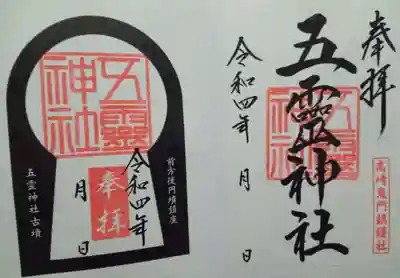 奉拝
五靈神社
五靈神社
高崎鬼門鎮護社
令和四年 月 日
五靈神社
前方後円墳頭座
奉拝
令和四年
月 日
五霊神社古墳